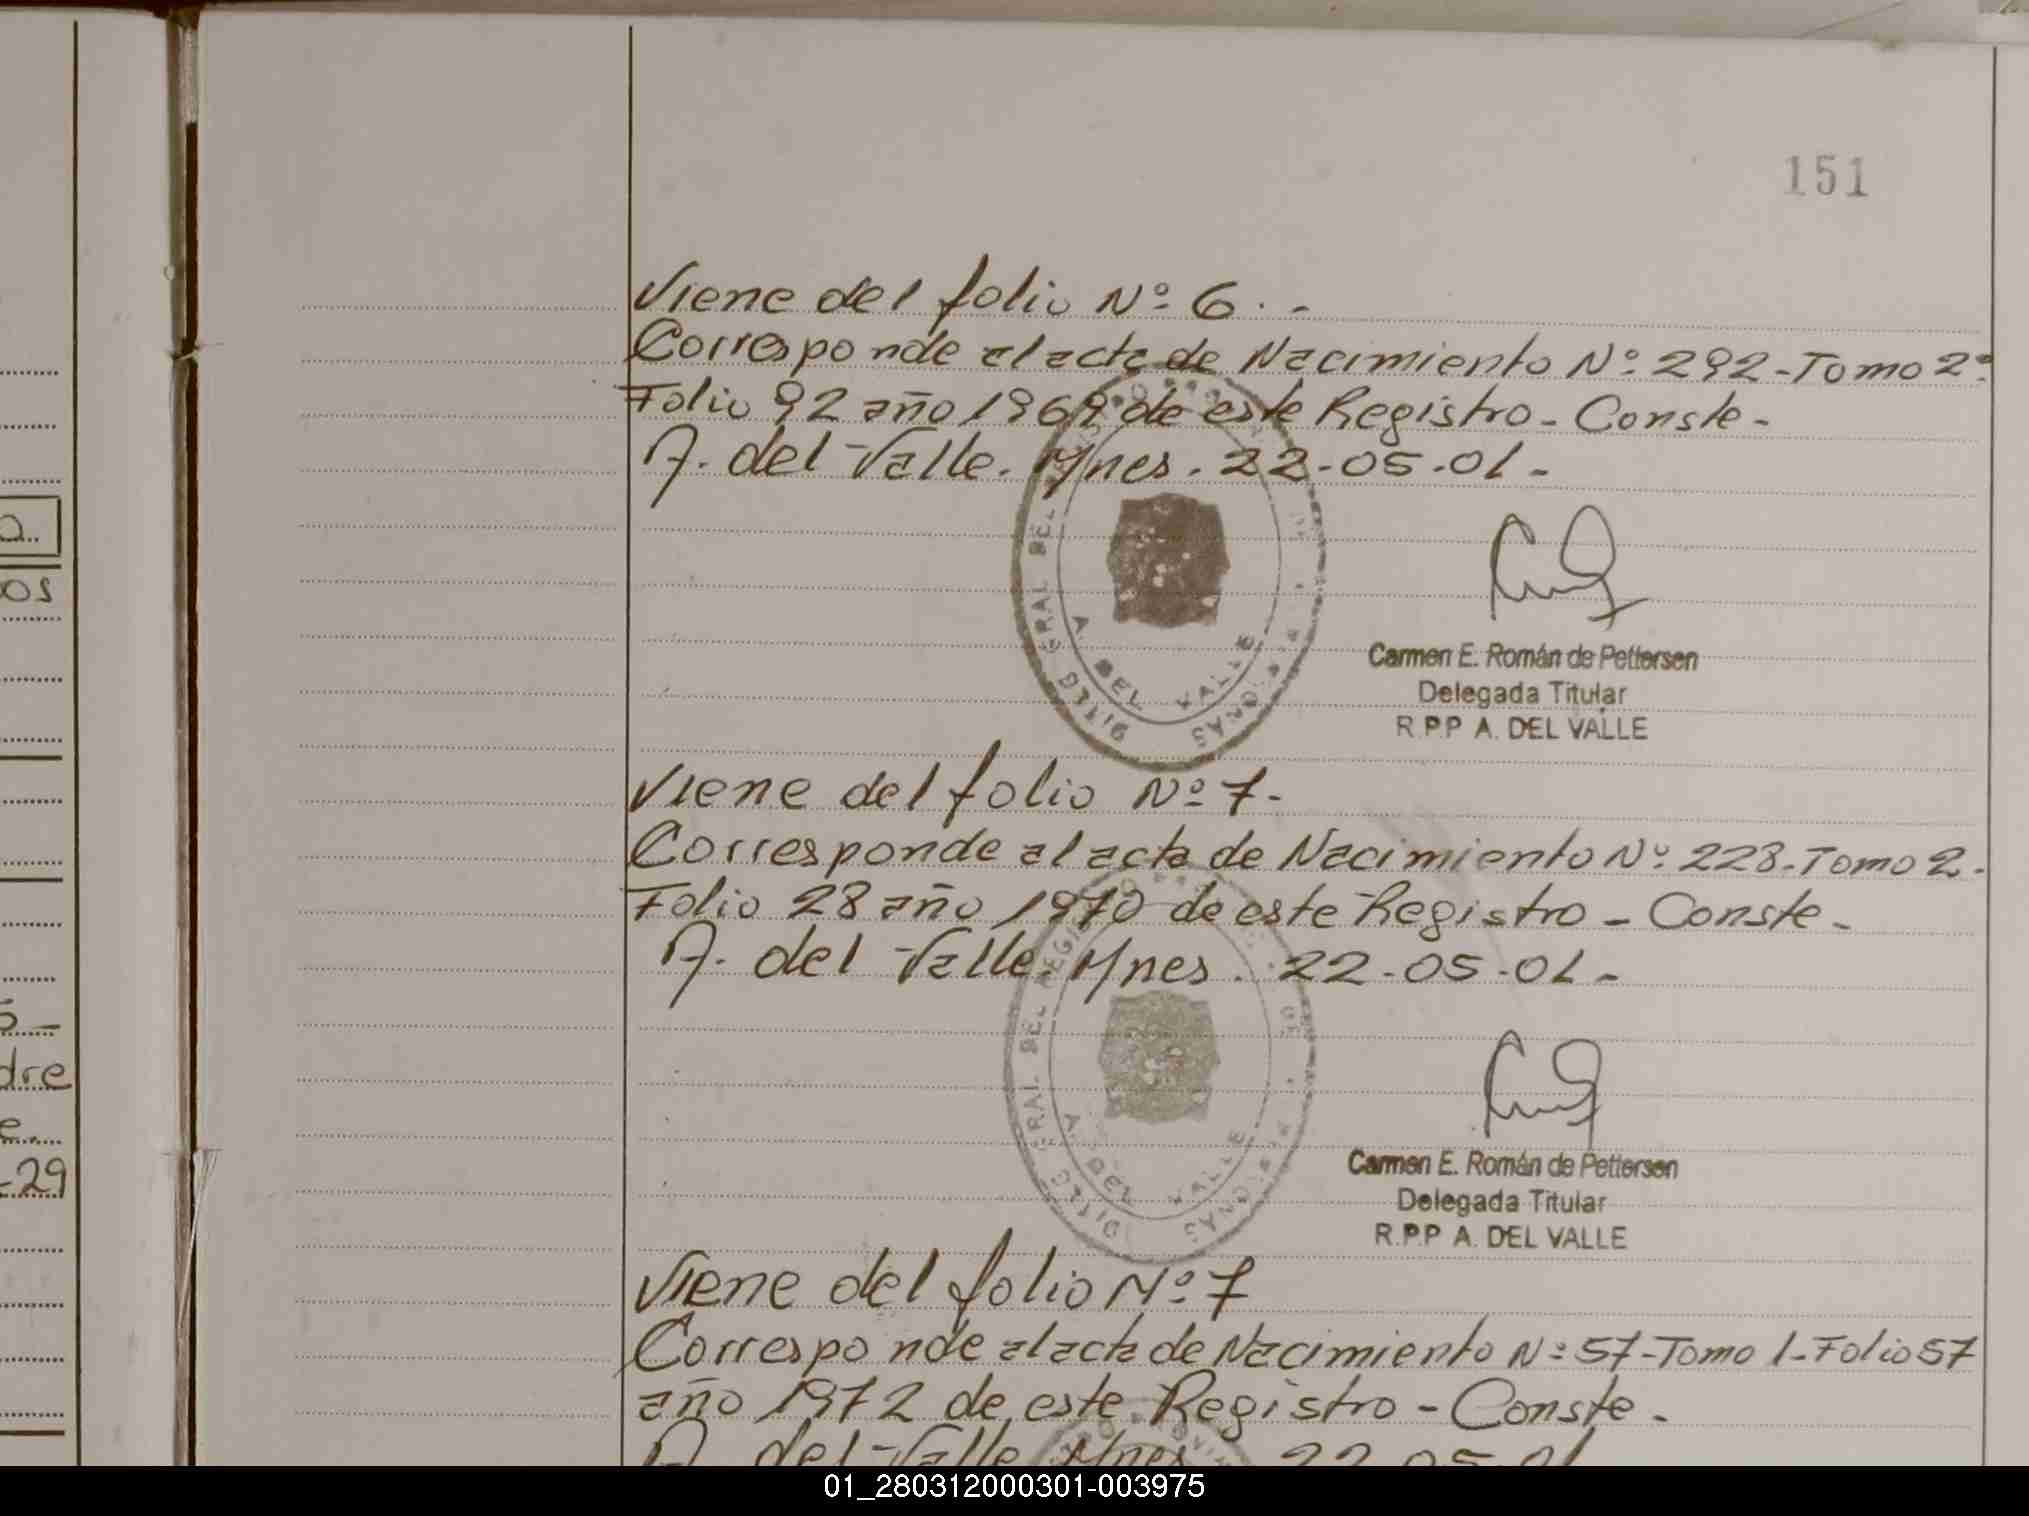 151
Viene del folio Nº 6. -
Corresponde al acta de Nacimiento Nº 292 - Tomo 2º
Folio 92 año 1969 de este Registro - Conste -
A. del Valle. Mnes. 22-05-01 -
GRAL DEL
A. DEL VALLE
Carmen E. Román de Pettersen
Delegada Titular
R.P.P A. DEL VALLE
Viene del folio Nº 7 -
Corresponde al acta de Nacimiento Nº 228 - Tomo 2 -
Folio 28 año 1970 de este Registro - Conste -
A. del Valle. Mnes. 22-05-01 -
GRAL DEL REGIS
A. DEL VALLE
Carmen E. Román de Pettersen
Delegada Titular
R.P.P A. DEL VALLE
Viene del folio Nº 7
Corresponde al acta de Nacimiento Nº 57 - Tomo 1 - Folio 57
año 1972 de este Registro - Conste -
A. del Valle Mnes 22-05-01
os
dre
e
-29
01_280312000301-003975